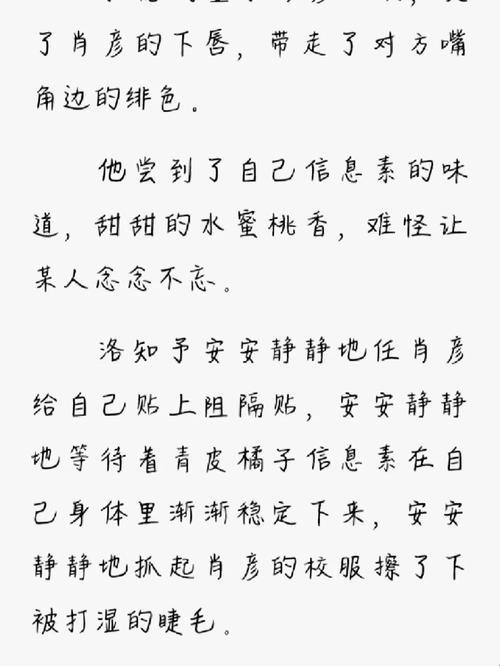 了肖彦的下唇，带走了对方嘴
角边的绯色。
他尝到了自己信息素的味
道，甜甜的水蜜桃香，难怪让
某人念念不忘。
洛知予安安静静地任肖彦
给自己贴上阻隔贴，安安静静
地等待着青皮橘子信息素在自
己身体里渐渐稳定下来，安安
静静地抓起肖彦的校服擦了下
被打湿的睫毛。